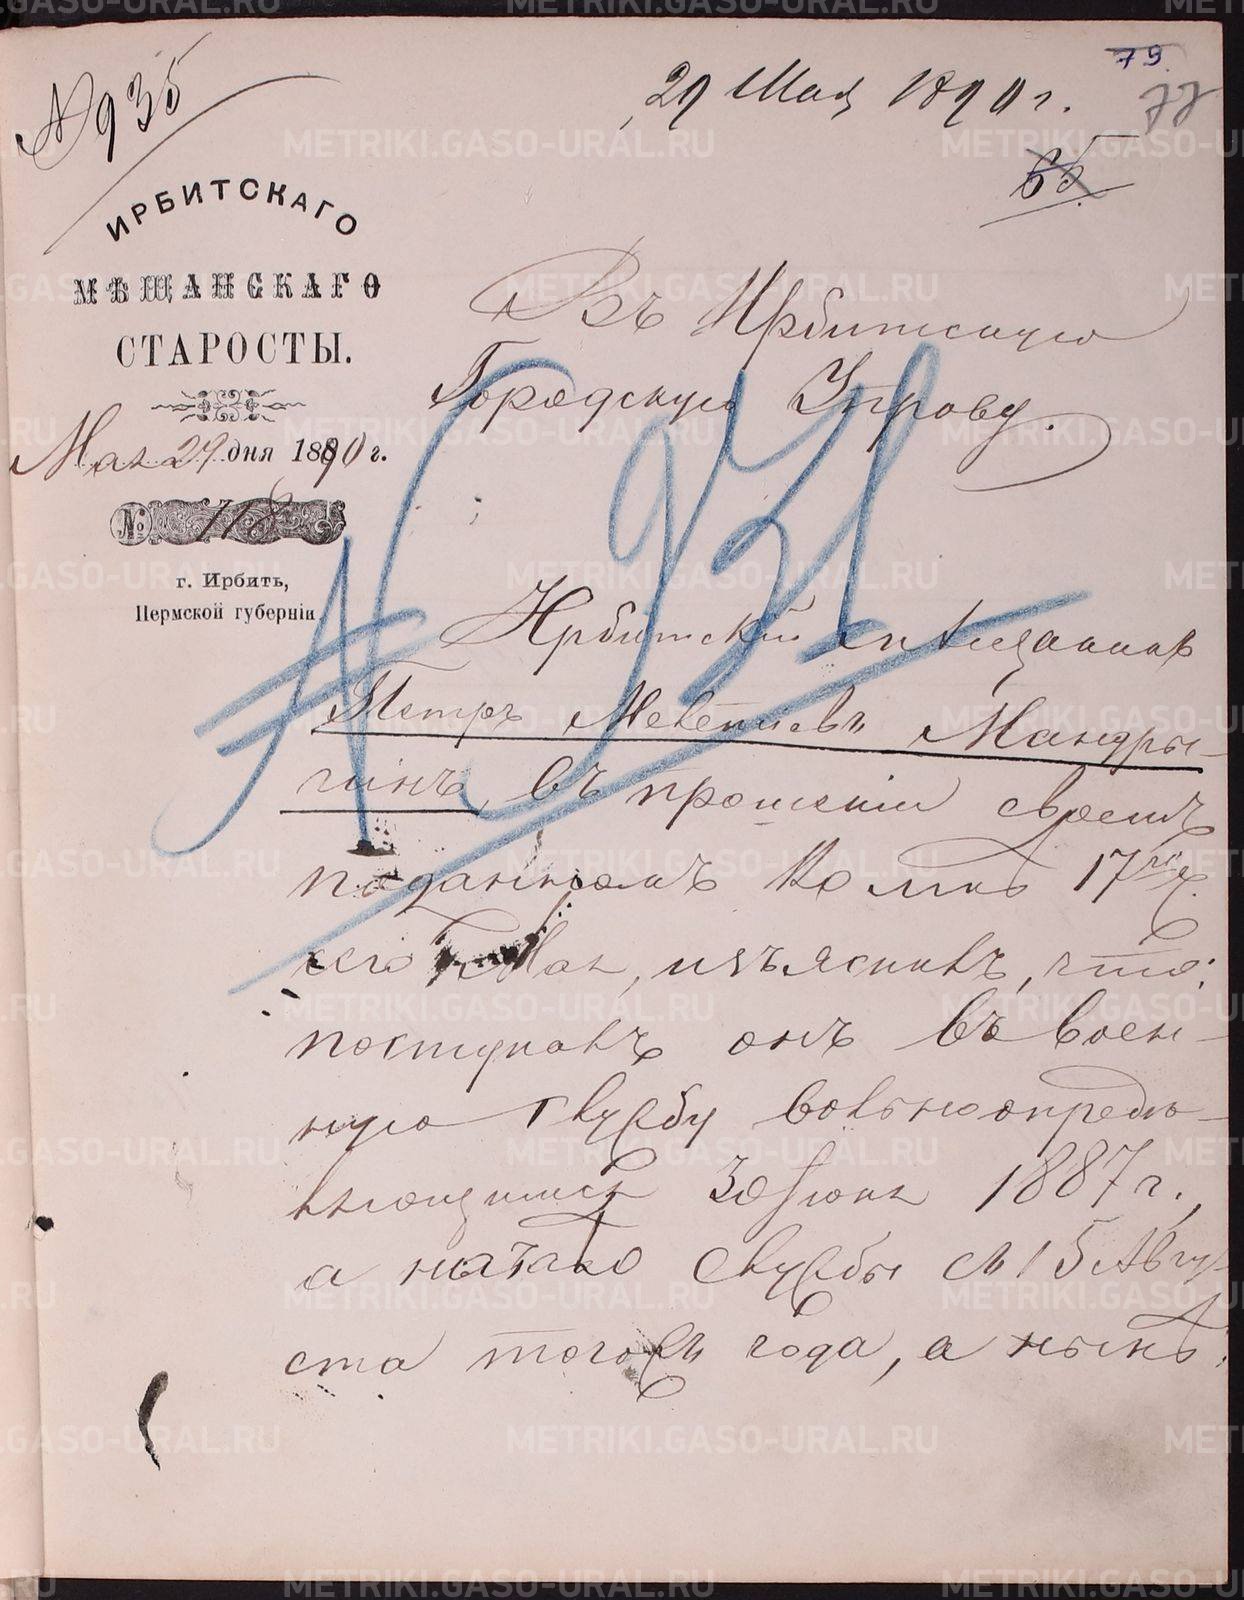 79.
№ 935
29 Мая 1890 г.
77
65
ИРБИТСКАГО
МѢЩАНСКАГО
СТАРОСТЫ.
Мая 29 дня 1890 г.
№ 118
г. Ирбить,
Пермской губерніи
Въ Ирбитскую
Городскую Управу.
№ 931
Ирбитскій мѣщанинъ
Петръ Мандры-
гинъ, въ прошеніи своемъ
поданномъ ко мнѣ 17го
сего Мая, изъяснилъ, что:
поступилъ онъ въ воен-
ную службу вольноопредѣ-
ляющимся 30 Іюня 1887 г.,
а начало службы съ 15 Авгу-
ста того же года, а нынѣ
METRIKI.GASO-URAL.RU